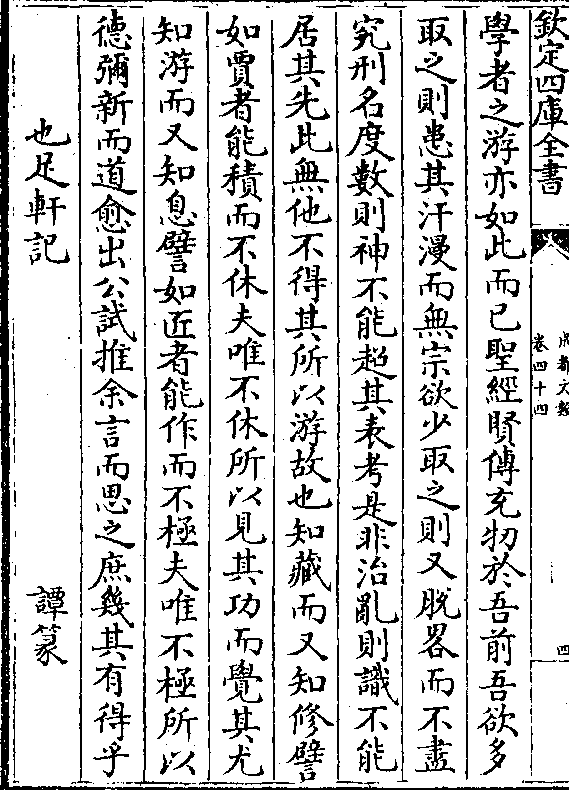 欽定四庫全書
成都文類
卷四十四
四
學者之游亦如此而已聖經賢傳充牣於吾前吾欲多
取之則患其汗漫而無宗欲少取之則又脫畧而不盡
究刑名度數則神不能超其表考是非治亂則識不能
居其先此無他不得其所以游故也知藏而又知修譬
如賈者能積而不休夫唯不休所以見其功而覺其尤
知游而又知息譬如匠者能作而不極夫唯不極所以
德彌新而道愈出公試推余言而思之庶幾其有得乎
也足軒記
譚篆